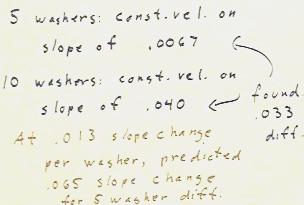 5 washers: const. vel. on
slope of .0067
10 washers: const. vel. on
slope of .040
found
.033
diff.
At .013 slope change
per washer, predicted
.065 slope change
for 5 washer diff.